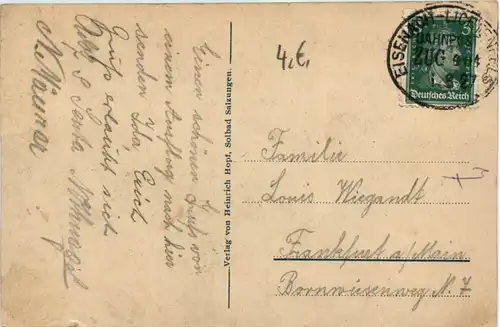 Einen schönen Gruß von
einem Ausflug nach hier
senden Ida Erich
Gruß erlaubt sich
N. Maurer
Verlag von Heinrich Hopf, Solbad Salzungen.
4,-
EISENACH - LICHTENFELS
BAHNPOST
ZUG
5
Deutsches Reich
Familie
Louis Wiegandt
Frankfurt a/Main
Bornwiesenweg N. 7